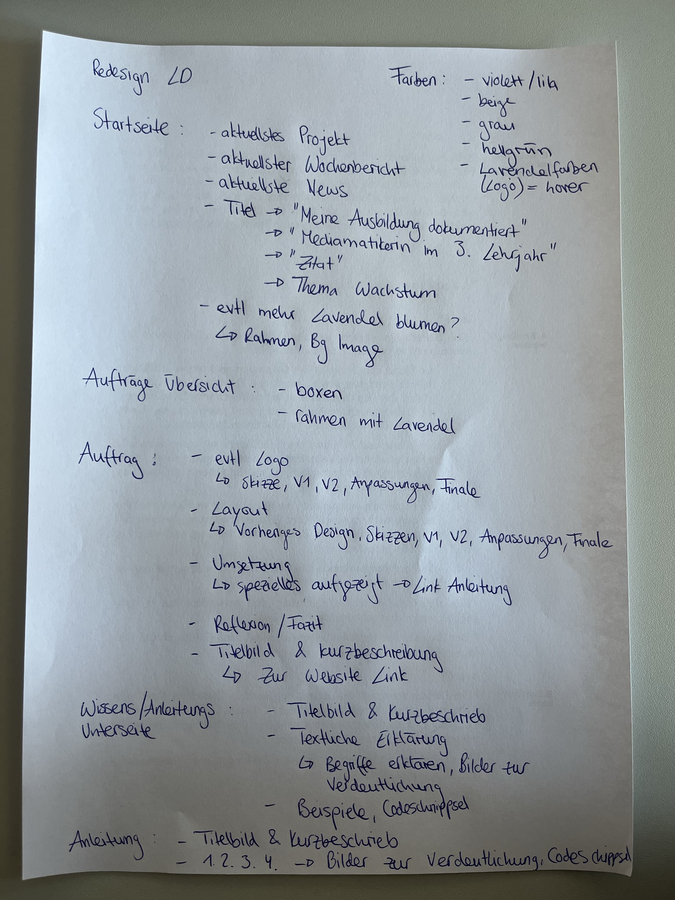 Redesign LD
Farben : - violett / lila
- beige
- grau
- hellgrün
- Lavendelfarben
(Logo) = hover
Startseite : - aktuellstes Projekt
- aktuellster Wochenbericht
- aktuellste News
- Titel → "Meine Ausbildung dokumentiert"
→ "Mediamatikerin im 3. Lehrjahr"
→ "Zitat"
→ Thema Wachstum
- evtl mehr Lavendel blumen ?
↳ Rahmen, Bg Image
Aufträge Übersicht : - boxen
- rahmen mit Lavendel
Auftrag : - evtl Logo
↳ Skizze, V1, V2, Anpassungen, Finale
- Layout
↳ Vorheriges Design, Skizzen, V1, V2, Anpassungen, Finale
- Umsetzung
↳ spezielles aufgezeigt → Link Anleitung
- Reflexion / Fazit
- Titelbild & kurzbeschreibung
↳ Zur Website Link
Wissens/Anleitungs : - Titelbild & Kurzbeschrieb
Unterseite - Textliche Erklärung
↳ Begriffe erklären, Bilder zur
Verdeutlichung
- Beispiele, Codeschnippsel
Anleitung : - Titelbild & Kurzbeschrieb
- 1. 2. 3. 4. → Bilder zur Verdeutlichung, Codeschippsel